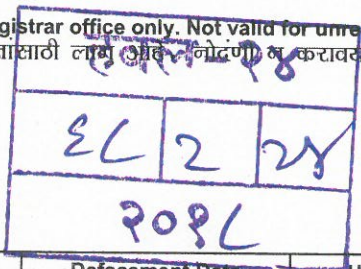 gistrar office only. Not valid for unre
तासाठी लागू आहे. नोदंणी न करावय
६८ 2 २४
२०१८
Defacement